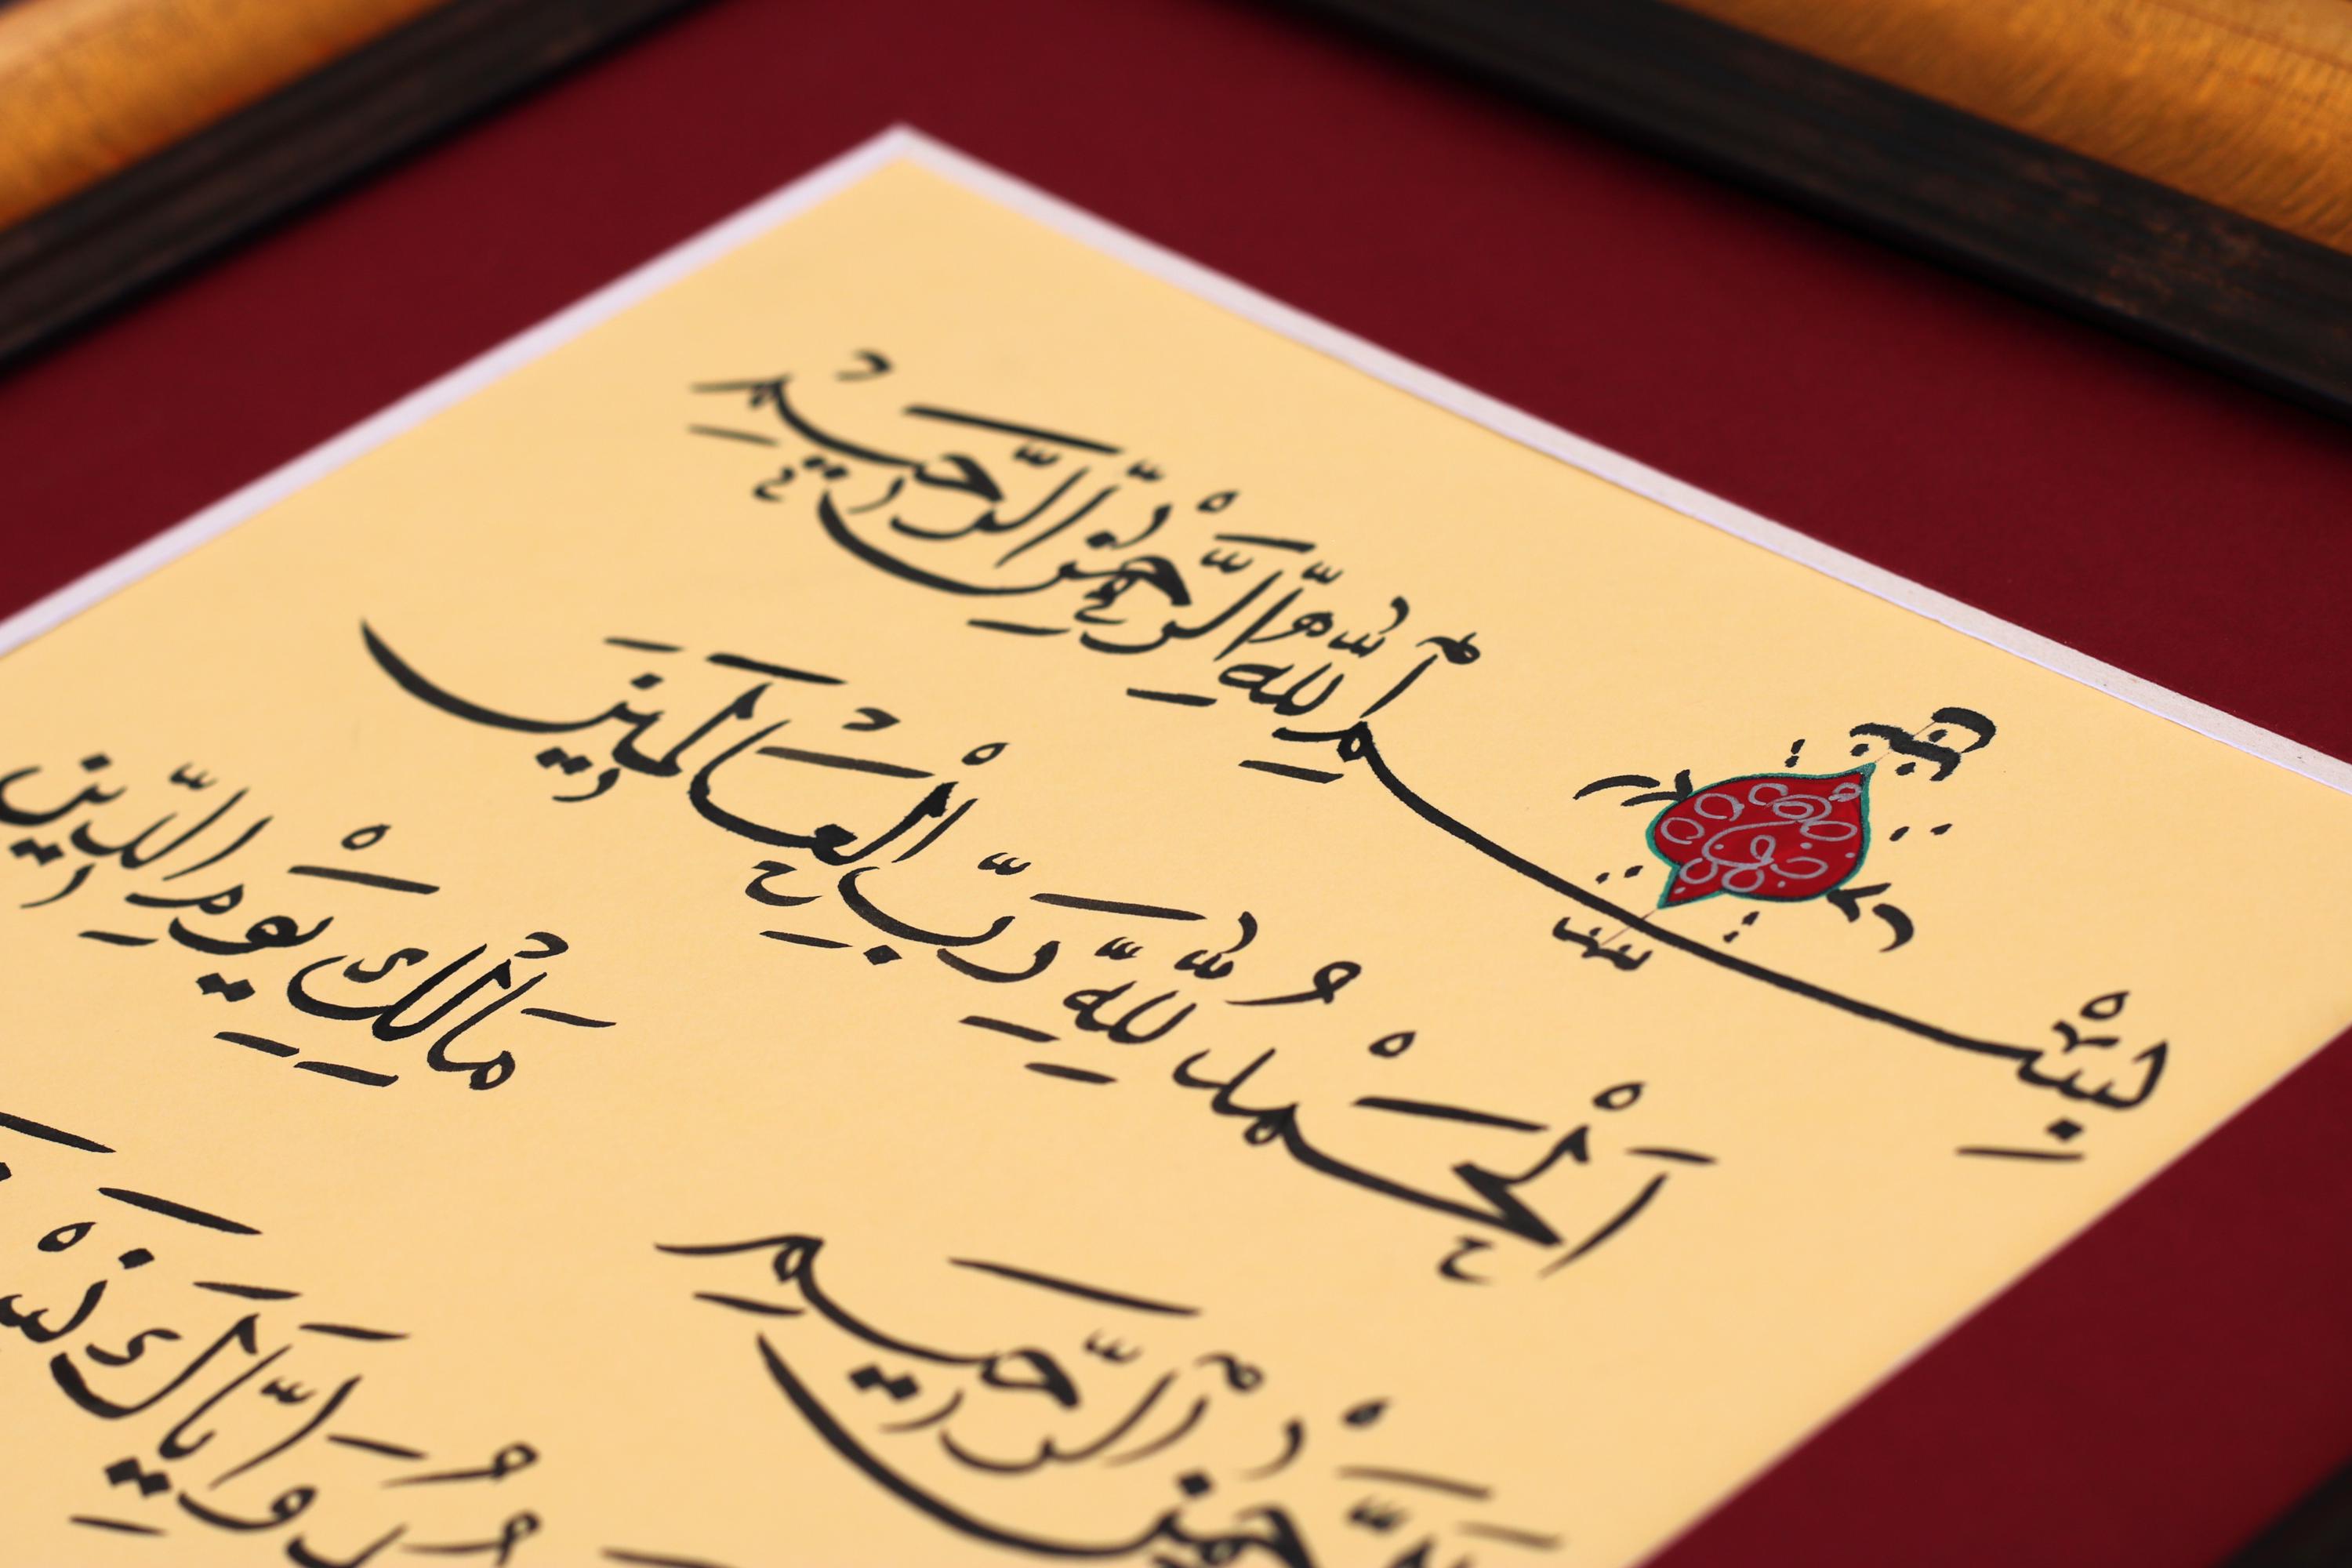 بِسْمِ اللَّهِ الرَّحْمَنِ الرَّحِيمِ
اَلْحَمْدُ لِلَّهِ رَبِّ الْعَالَمِينَ
الرَّحْمَنِ الرَّحِيمِ مَالِكِ يَوْمِ الدِّينِ
وَإِيَّاكَ